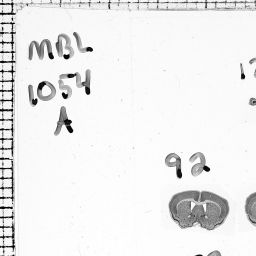 MBL
1054
A
92